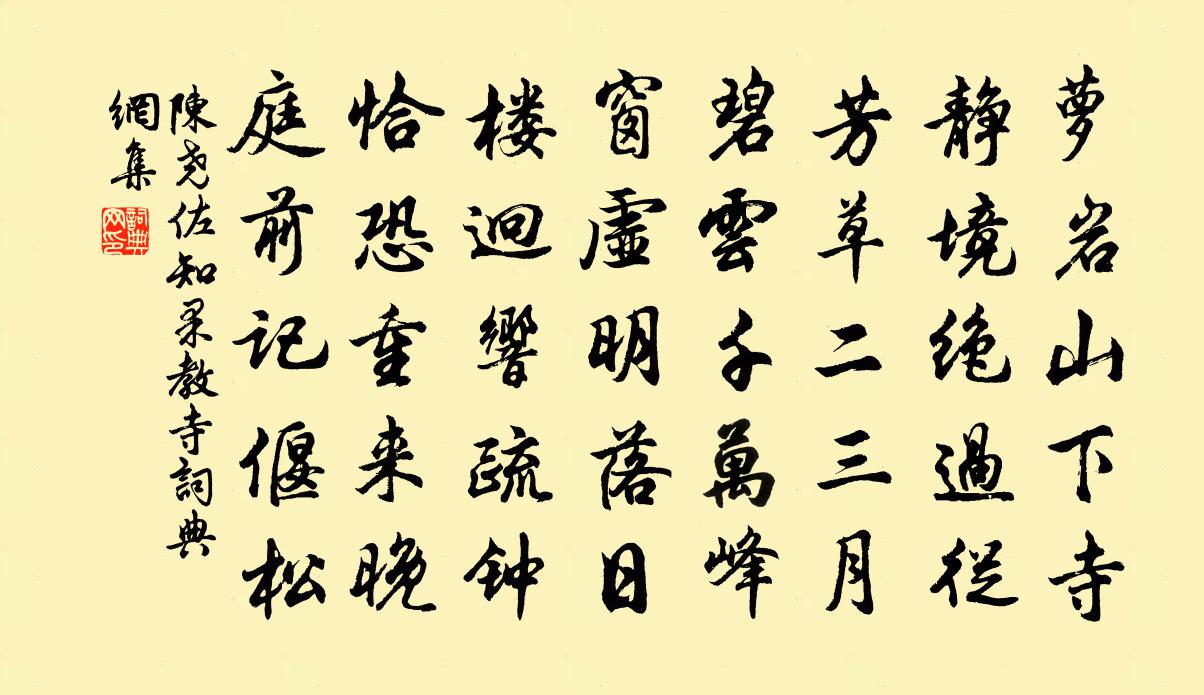 萝岩山下寺
静境绝過從
芳草二三月
碧雲千萬峰
窗虛明落日
楼迴響疏钟
恰恐重来晚
庭前记偃松
陳尧佐知果教寺詞典
網集
詞典网印